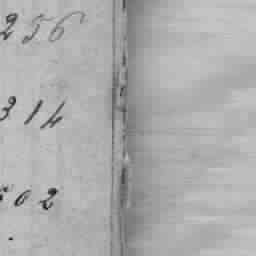 256
314
502